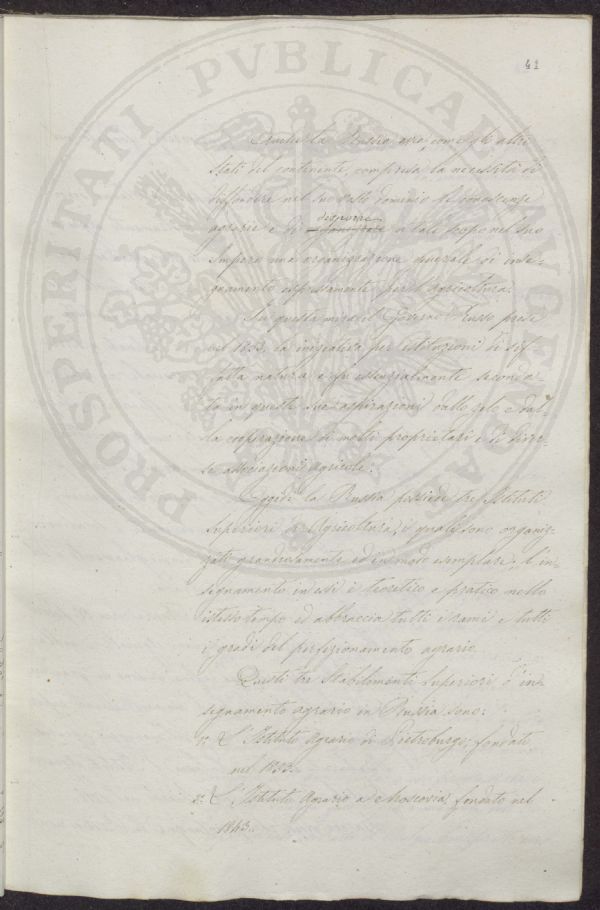 41
Anche la Russia avea, come gli altri
Stati del continente, compresa la necessità di
diffondere nel suo vasto dominio le conoscenze
agrarie e di disporre a tale scopo nel suo
Impero una organizzazione generale di inse-
gnamento espressamente per l'agricoltura.
In questa mira il Governo Russo prese
nel 1833. la iniziativa per istituzioni di sif-
fatta natura e fu essenzialmente seconda-
to in queste sue aspirazioni dallo zelo e dal-
la cooperazione di molti proprietari e di diver-
se associazioni agricole.
Oggidì la Russia possiede tre Istituti
Superiori di Agricoltura, i quali sono organiz-
zati grandiosamente ed in modo esemplare; l'in-
segnamento in essi è teoretico e pratico nello
istesso tempo ed abbraccia tutti i rami e tutti
i gradi del perfezionamento agrario.
Questi tre Stabilimenti Superiori d'in-
segnamento agrario in Russia sono:
1. L'Istituto Agrario di Pietroburgo, fondato
nel 1833.
2. L'Istituto Agrario a Moscovia, fondato nel
1843.
PROSPERITATI PVBLICAE AVGENDAE